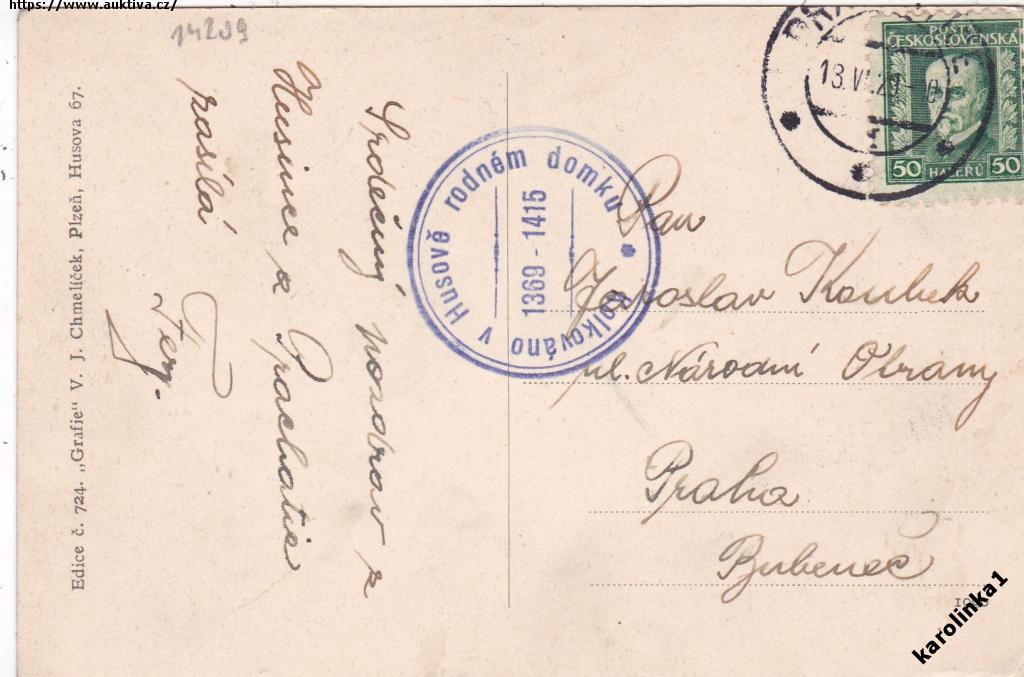 https://www.auktiva.cz/
14289
Srdečný pozdrav z
Husince a Prachatic
zasílá
Fery.
Edice č. 724. „Grafie" V. J. Chmelíček, Plzeň, Husova 67.
kolkováno v Husově rodném domku
1369 - 1415
13.VI.29
POŠTA
ČESKOSLOVENSKÁ
50 HALÉŘŮ 50
Pan
Jaroslav Koubek
ul. Národní Obrany
Praha
Bubeneč
karolinka1